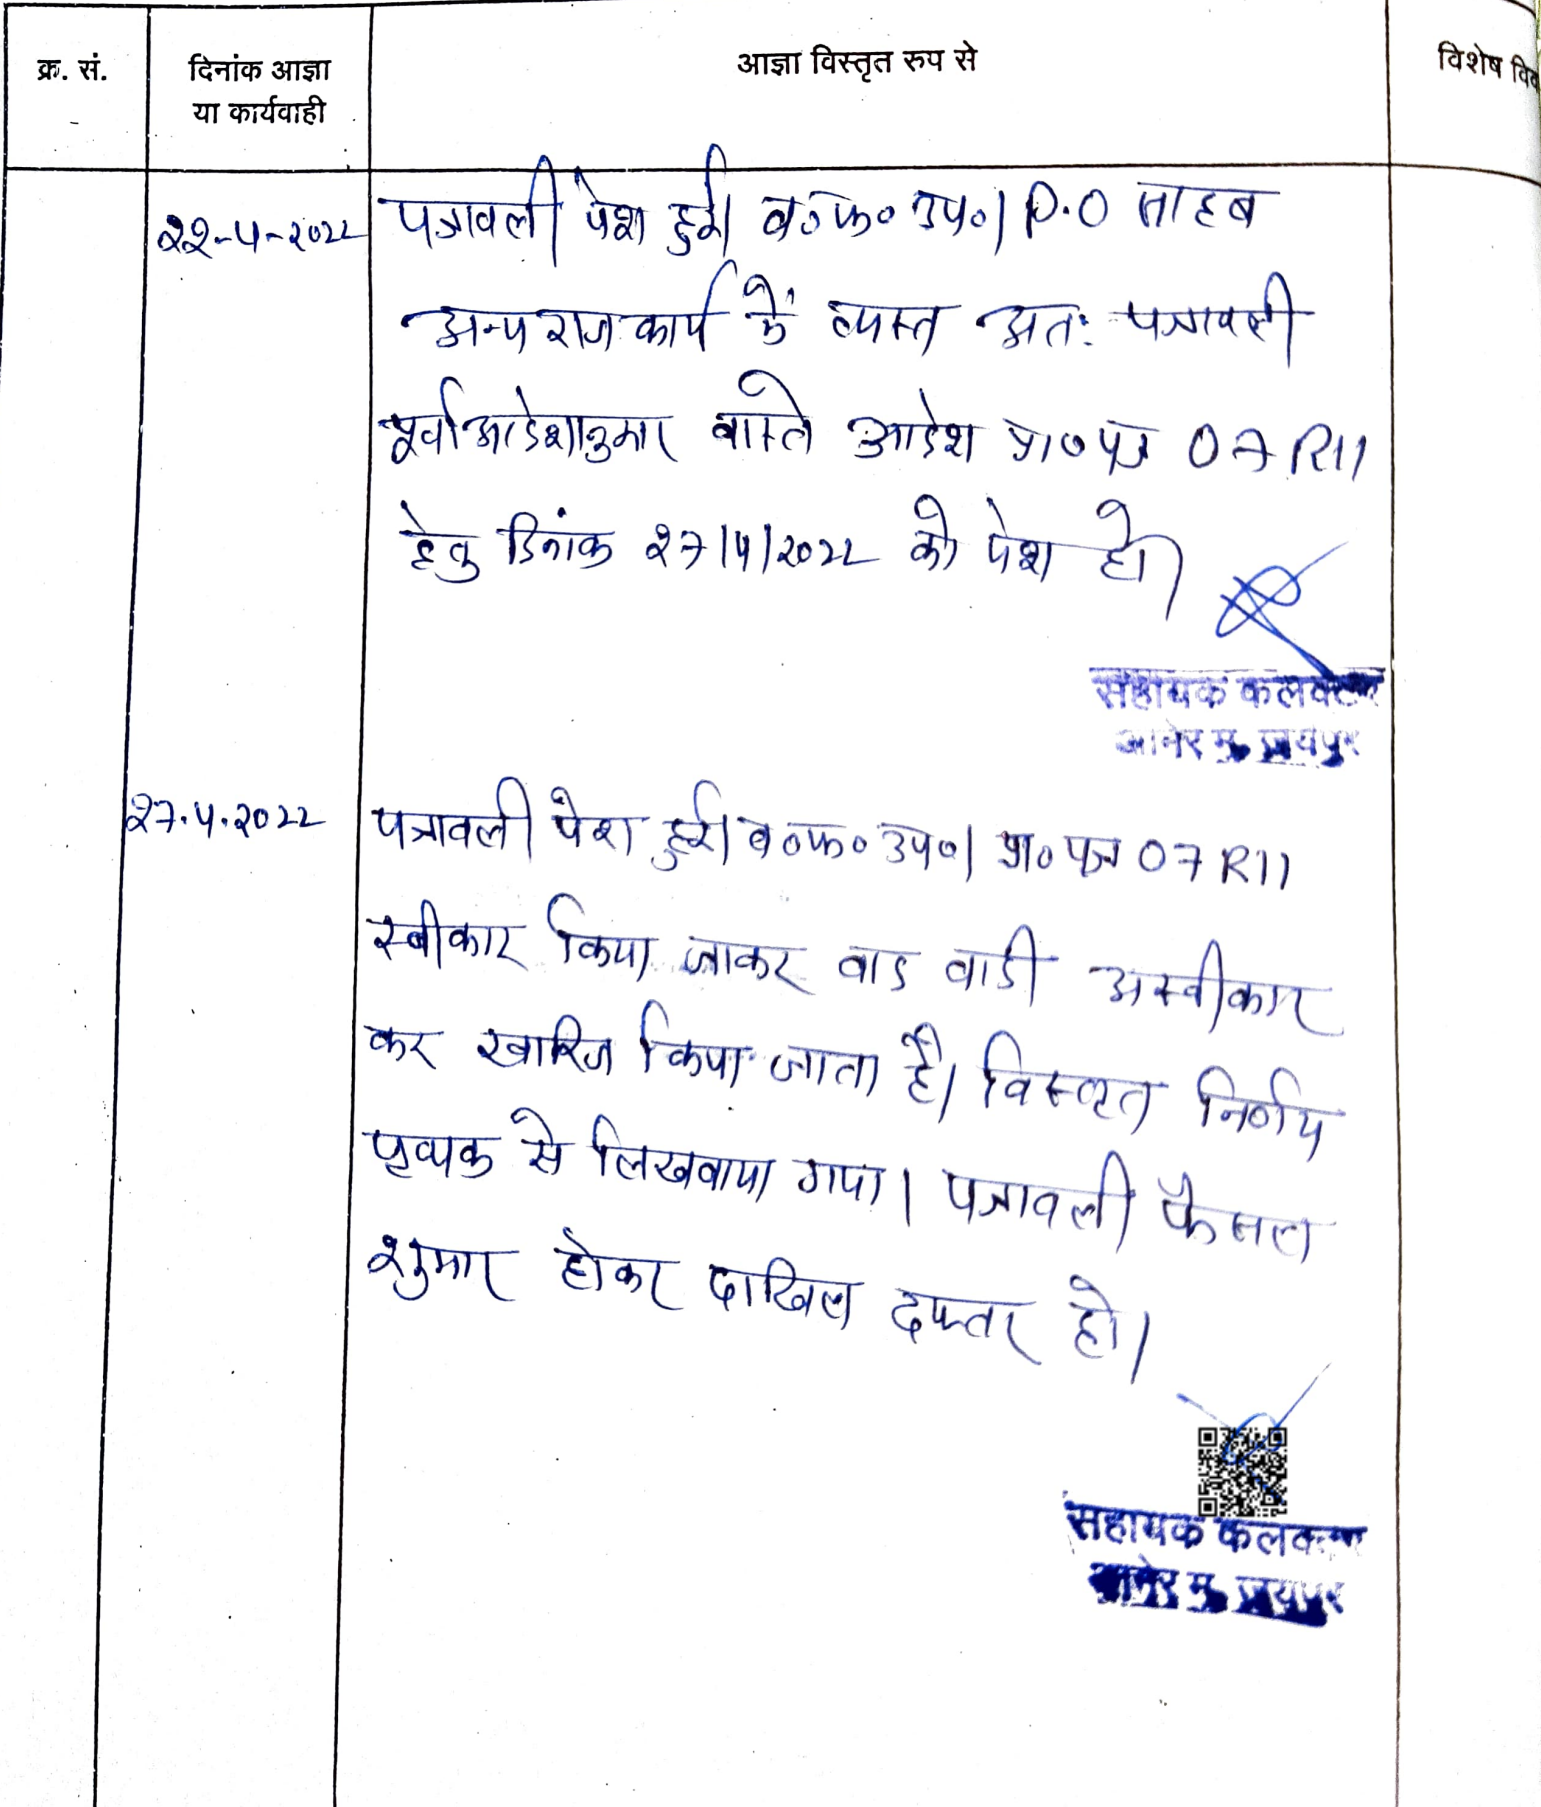 क्र. सं.
दिनांक आज्ञा
या कार्यवाही
आज्ञा विस्तृत रुप से
विशेष विव
22-4-2022
पत्रावली पेश हुई। व०फ० उप०। P.O साहब
अन्य राज कार्य में व्यस्त अतः पत्रावली
पूर्व आदेशानुसार वास्ते आदेश प्रा० पत्र 07 R11
हेतु दिनांक 27/4/2022 को पेश हो।
सहायक कलक्टर
आमेर मु. जयपुर
27.4.2022
पत्रावली पेश हुई। व०फ० उप०। प्रा० पत्र 07 R11
स्वीकार किया जाकर वाद वादी अस्वीकार
कर खारिज किया जाता है। विस्तृत निर्णय
पृथक से लिखवाया गया। पत्रावली फैसल
शुमार होकर दाखिल दफ्तर हो।
सहायक कलक्टर
आमेर मु. जयपुर